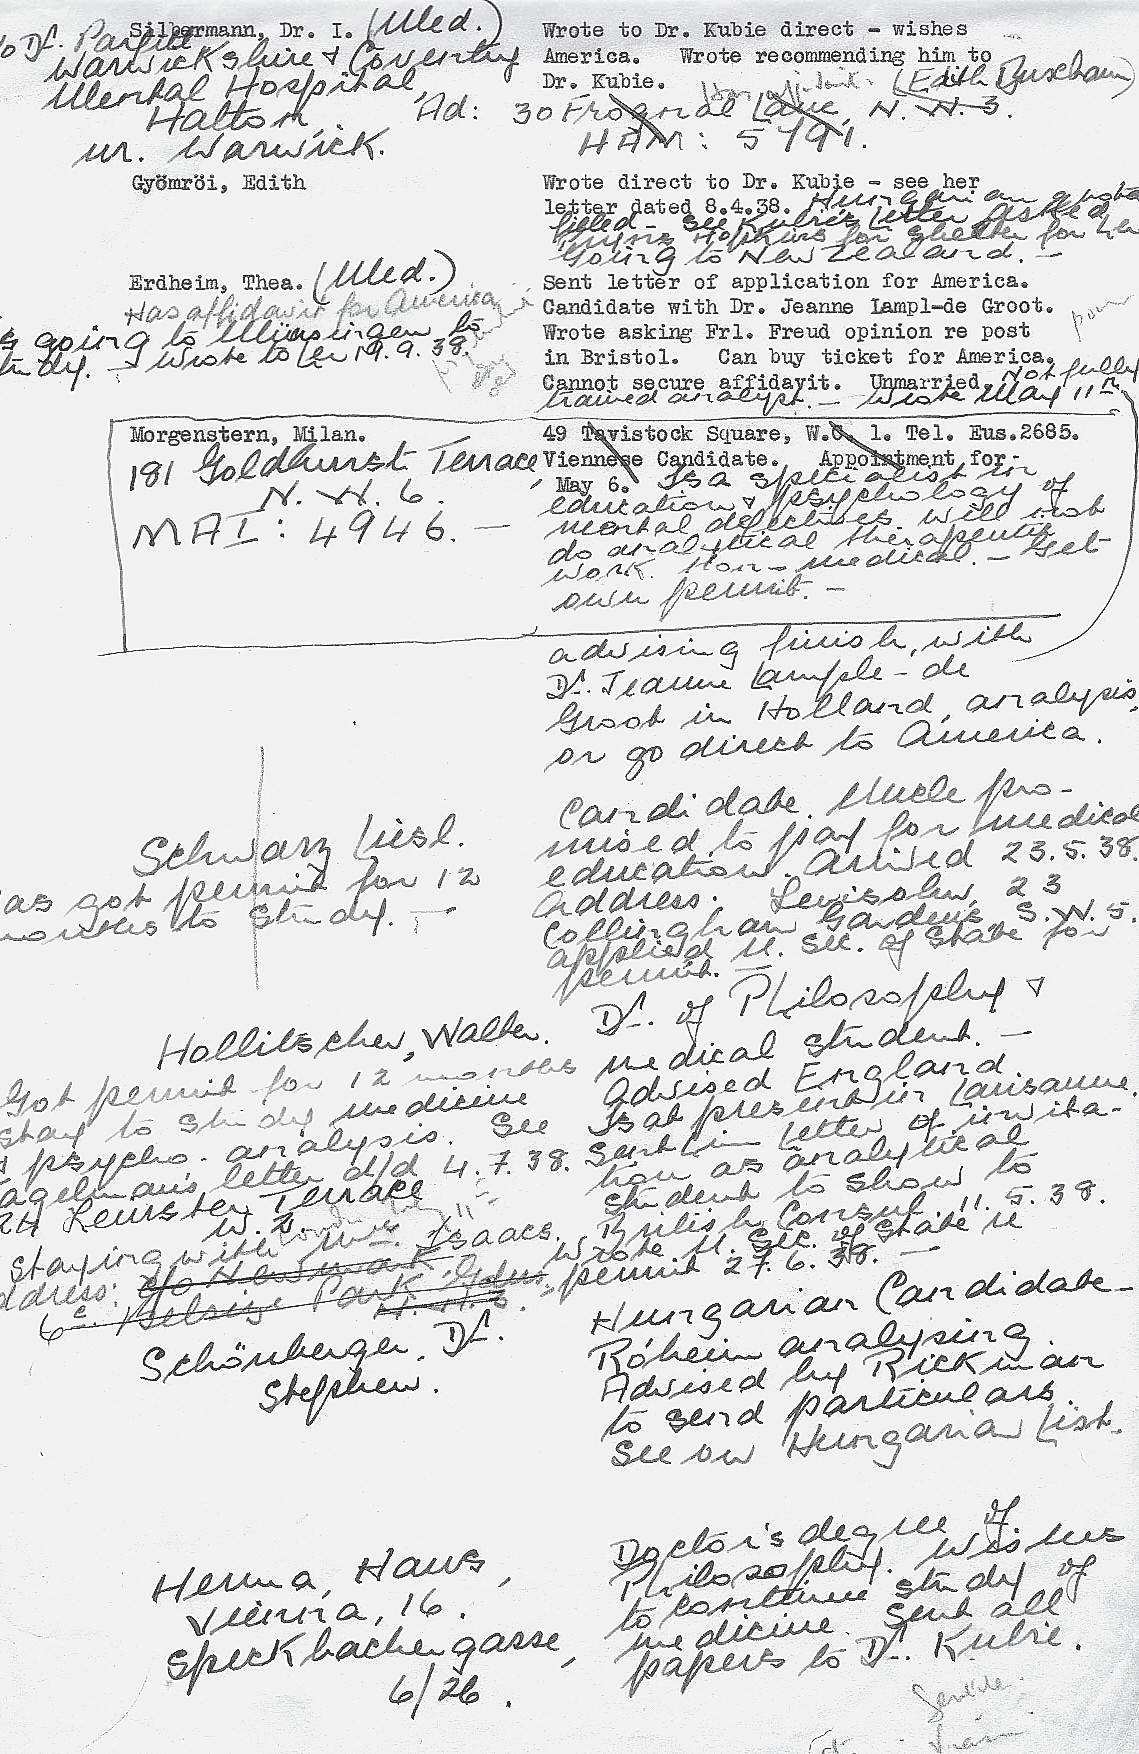 Silbermann, Dr. I. (Med.)
Dr.
Warwickshire & Coventry
Mental Hospital,
Hatton,
nr. Warwick.
Wrote to Dr. Kubie direct - wishes
America. Wrote recommending him to
Dr. Kubie. Has affidavit. (Edith Buxbaum)
Ad: 30 Frognal Lane, N.W.3.
HAM: 5791.
Gyömröi, Edith
Wrote direct to Dr. Kubie - see her
letter dated 8.4.38. Hungarian quota
filled - see Kubie's letter asked
Hopkins for shelter for her
Going to New Zealand. -
Erdheim, Thea. (Med.)
Has affidavit for America
going to Münsingen to
study. - Wrote to her 19.9.38.
Sent letter of application for America.
Candidate with Dr. Jeanne Lampl-de Groot.
Wrote asking Frl. Freud opinion re post
in Bristol. Can buy ticket for America.
Cannot secure affidavit. Unmarried. Not fully
trained analyst. - Wrote May 11th
Morgenstern, Milan.
181 Goldhurst Terrace,
N.W.6.
MAI: 4946. -
49 Tavistock Square, W.C. 1. Tel. Eus.2685.
Viennese Candidate. Appointment for
May 6. Is a specialist in
education & psychology of
mental defectives. Will not
do analytical therapeutic
work. Non-medical. - Get
own permit. -
advising finish, with
Dr. Jeanne Lample-de
Groot in Holland, analysis,
or go direct to America.
Schwarz Liesl.
as got permit for 12
months to study. -
Candidate. Uncle pro-
mised to pay for medical
education. Arrived 23.5.38.
Address: Lewisohn, 23
Collingham Gardens, S.W.5.
applied U. Sec. of State for
permit. -
Hollitscher, Walter.
Got permit for 12 months
stay to study medicine
& psycho-analysis. See
letter d/d 4.7.38.
24 Leinster Terrace
W.2.
staying with Mrs. Isaacs.
ddress: c/o Newmark,
6c. Belsize Park Gdns,
N.W.3.
Dr. of Philosophy &
medical student. -
Advised England.
Is at present in Lausanne.
Sent him letter of invita-
tion as analytical
student to show to
British Consul. 11.5.38.
Wrote U. Sec. of State re
permit 27.6.38. -
Schönberger, Dr.
Stephen.
Hungarian Candidate-
Róheim analysing.
Advised by Rickman
to send particulars.
See on Hungarian List.
Herma, Hans,
Vienna, 16.
Speckbachergasse,
6/26.
Doctor's degree of
Philosophy. Wishes
to continue study of
medicine. Sent all
papers to Dr. Kubie.